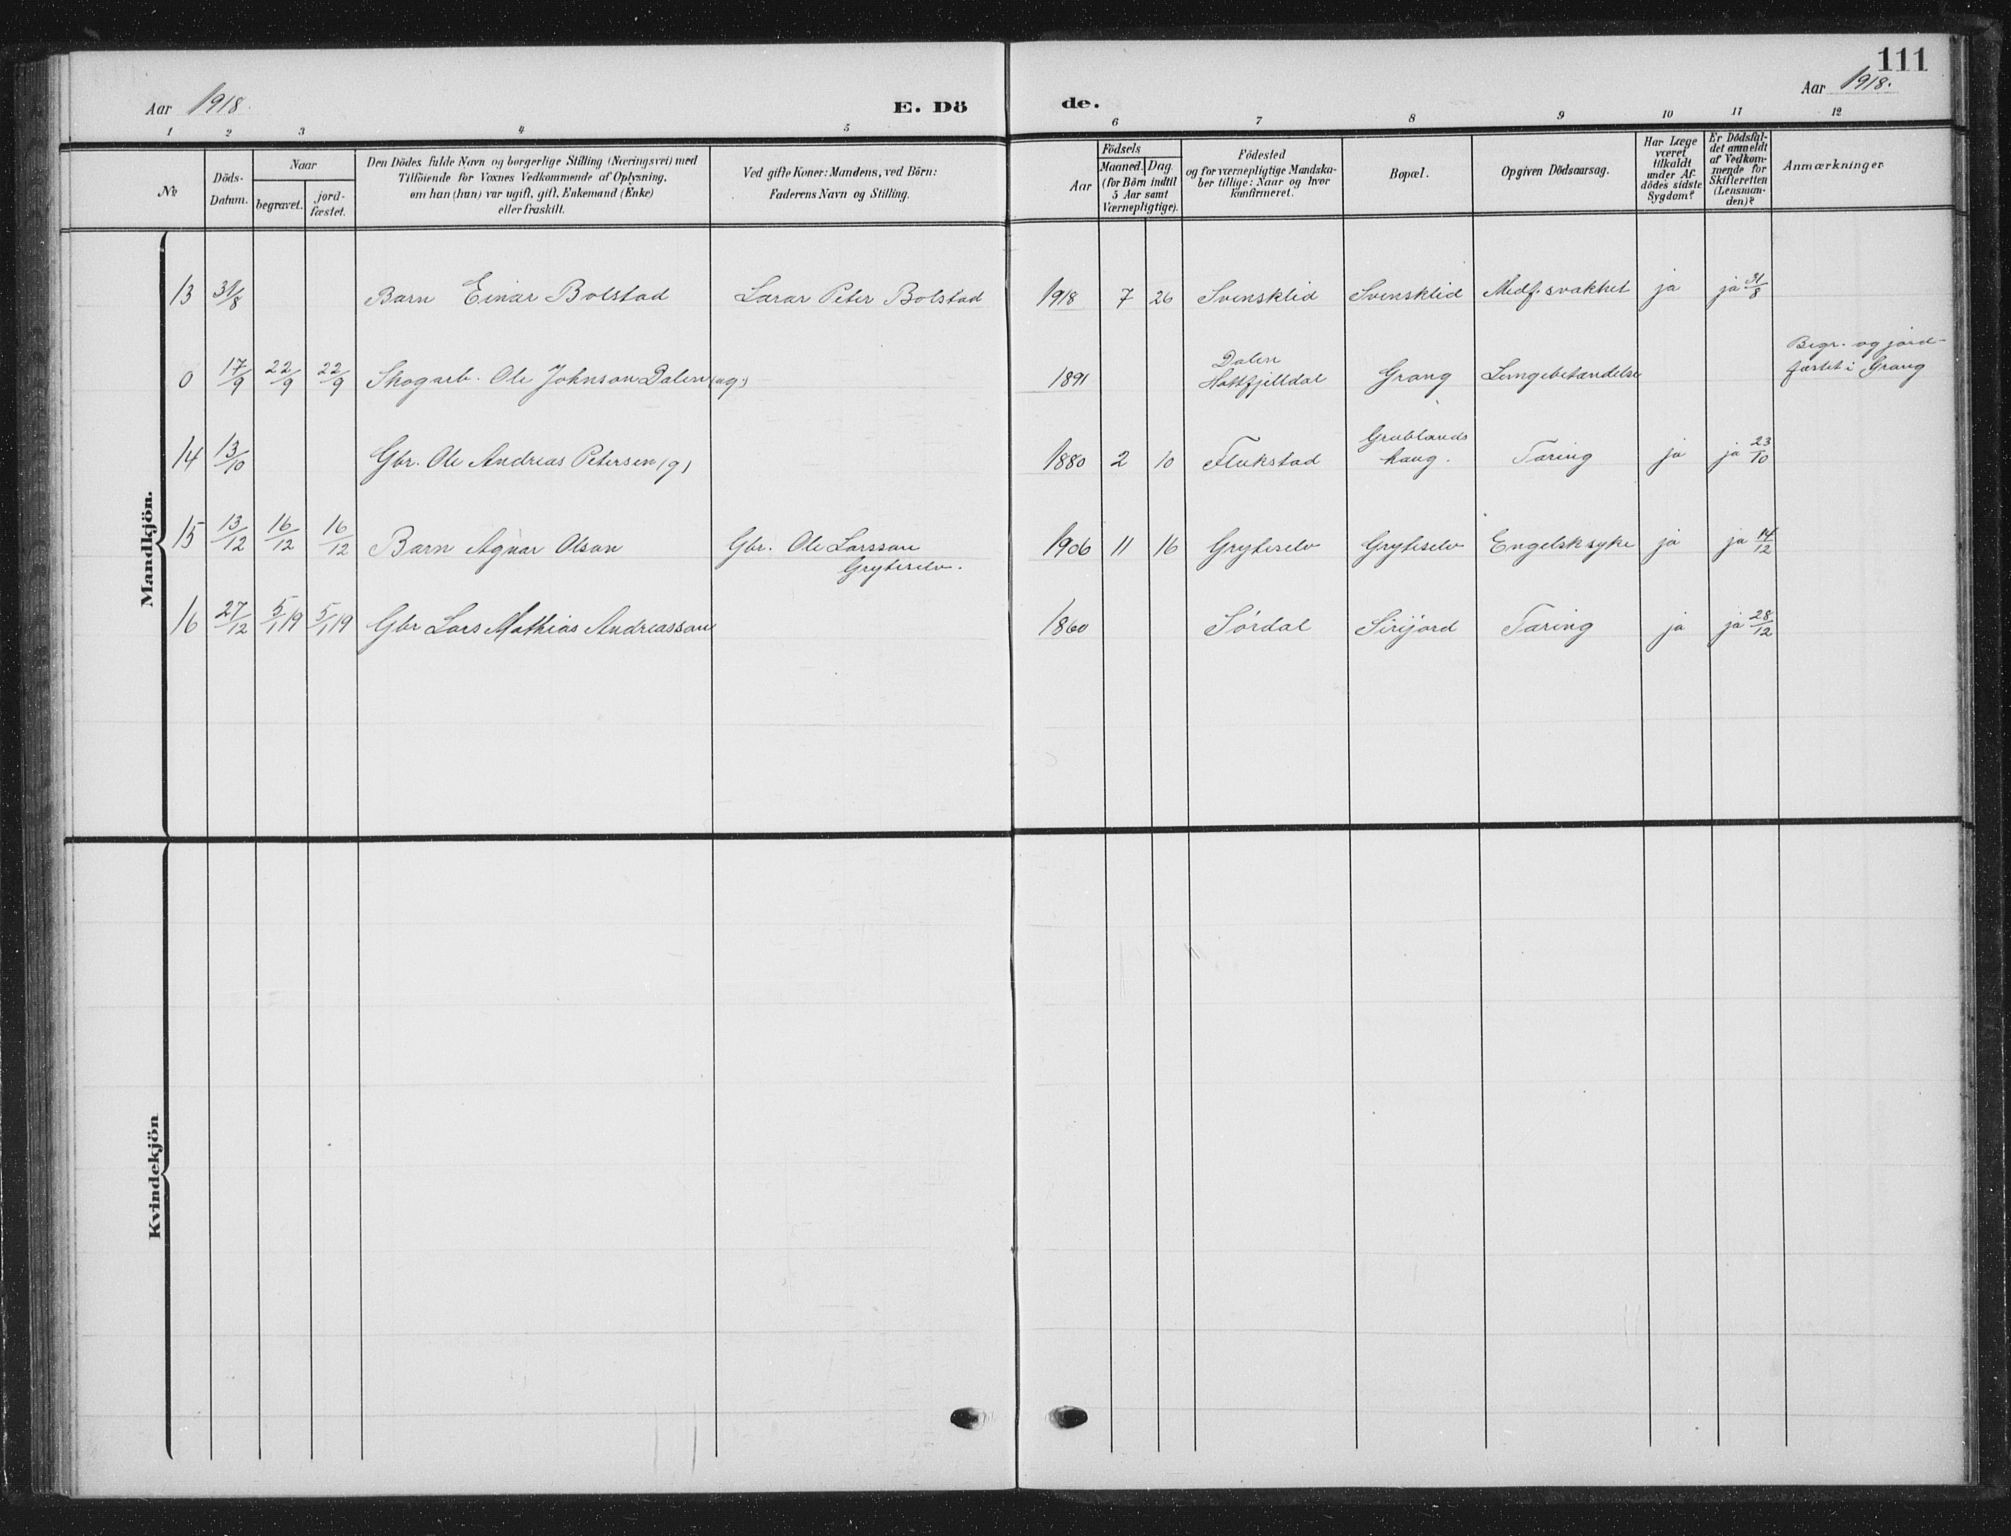 111
Aar 1918.
E. Dö
de.
Aar 1918.
1 2 3 4 5 6 7 8 9 10 11 12
No
Döds-
Datum.
Naar
begravet.
jord-
fæstet.
Den Dödes fulde Navn og borgerlige Stilling (Næringsvei) med
Tilföiende for Voxnes Vedkommende af Oplysning,
om han (hun) var ugift, gift, Enkemand (Enke)
eller fraskilt.
Ved gifte Koner: Mandens, ved Börn:
Faderens Navn og Stilling.
Födsels
Aar
Maaned.
Dag
(for Börn indtil
5 Aar samt
Værnepligtige).
Födested
og for værnepligtige Mandska-
ber tillige: Naar og hvor
konfirmeret.
Bopæl.
Opgiven Dödsaarsag.
Har Læge
været
tilkaldt
under Af-
dödes sidste
Sygdom?
Er Dödsfal-
det anmeldt
af Vedkom-
mende for
Skifteretten
(Lensman-
den)?
Anmærkninger
Mandkjön.
13 31/8 Barn Einar Bolstad Lærar Peter Bolstad 1918 7 26 Svensklid Svensklid Medf. svakhet ja ja 31/8
0 17/9 22/9 22/9 Skogarb. Ole Johnson Dalen (ug.) 1891 Dalen
Hattfjelldal Grong Lungebetændelse Begr. og jord-
fæstet i Grong
14 13/10 Gbr. Ole Andreas Petersen (g) 1880 2 10 Flukstad Grublands
haug. Tæring ja ja 23/10
15 13/12 16/12 16/12 Barn Agnar Olson Gbr. Ole Larsson
Gryteselv. 1906 11 16 Gryteselv Gryteselv Engelsk syke ja ja 14/12
16 27/12 5/1 19 5/1 19 Gbr Lars Mathias Andreasson 1860 Sørdal Sirijord Tæring ja ja 28/12
Kvindekjön